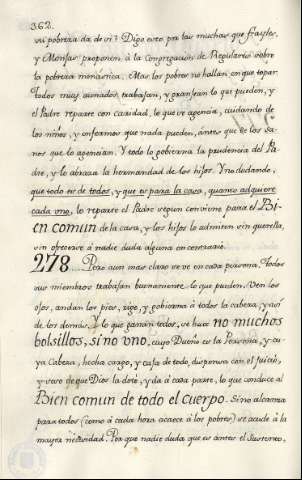 362.
su pobreza da de si? Digo esto por las muchas que frayles,
y Monjas proponen à la Congregacion de Regulares sobre
la pobreza monastica. Mas los pobres no hallan en que topar.
Todos muy aunados, trabajan, y grangean lo que pueden, y
el Padre reparte con caridad, lo que se agencia, cuidando de
los niños, y enfermos que nada pueden, àntes que de los sa-
nos que lo agencian. Y todo lo gobierna la prudencia del Pa-
dre, y lo abraza la hermandad de los hijos. Y no dudando,
que todo es de todos, y que es para la casa, quanto adquiere
cada uno, lo reparte el Padre segun conviene para el Bi-
en comun de la casa, y los hijos lo admiten sin querella,
sin ofrecerse à nadie duda alguna en contrario.
278. Pero aun mas claro se ve en cada persona. Todos
sus miembros trabajan buenamente, lo que pueden. Ven los
ojos, andan los pies, rige, y gobierna à todos la cabeza, y asi
de los demàs. Y lo que ganan todos, se hace no muchos
bolsillos, sino uno, cuyo Dueño es la Persona, y cu-
ya Cabeza, hecha cargo, y casa de todo, dispone con el juicio,
y seso que Dios la dotò, y dà à cada parte, lo que conduce al
Bien comun de todo el cuerpo. Si no alcanza
para todos (como à cada hora acaece à los pobres) se acude à la
mayor necesidad. Porque nadie duda que es antes el sustento,